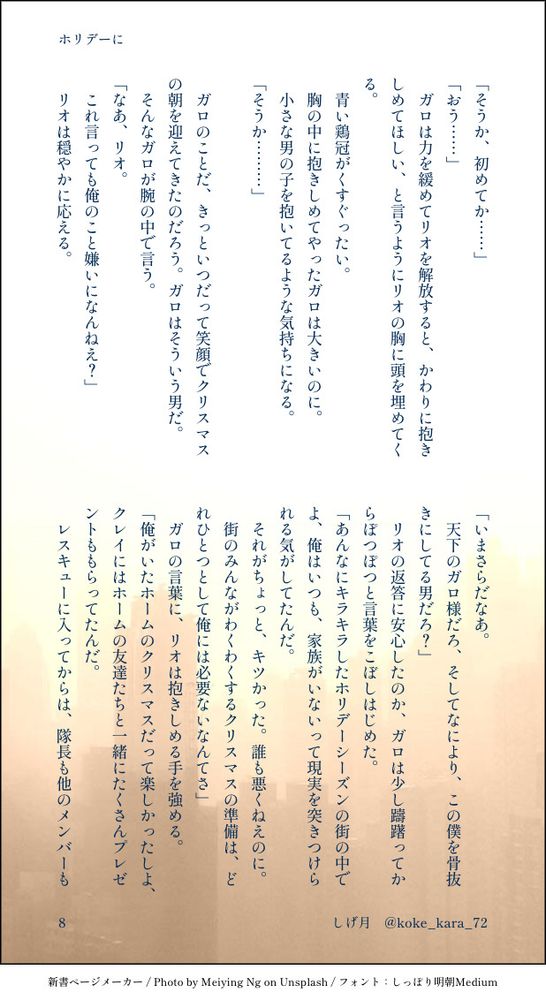 ホリデーに
「そうか、初めてか……」
「おう……」
ガロは力を緩めてリオを解放すると、かわりに抱き
しめてほしい、と言うようにリオの胸に頭を埋めてく
る。
青い鶏冠がくすぐったい。
胸の中に抱きしめてやったガロは大きいのに。
小さな男の子を抱いてるような気持ちになる。
「そうか………」
ガロのことだ、きっといつだって笑顔でクリスマス
の朝を迎えてきたのだろう。ガロはそういう男だ。
そんなガロが腕の中で言う。
「なあ、リオ。
これ言っても俺のこと嫌いになんねえ？」
リオは穏やかに応える。
「いまさらだなあ。
天下のガロ様だろ、そしてなにより、この僕を骨抜
きにしてる男だろ？」
リオの返答に安心したのか、ガロは少し躊躇ってか
らぽつぽつと言葉をこぼしはじめた。
「あんなにキラキラしたホリデーシーズンの街の中で
よ、俺はいつも、家族がいないって現実を突きつけら
れる気がしてたんだ。
それがちょっと、キツかった。誰も悪くねえのに。
街のみんながわくわくするクリスマスの準備は、ど
れひとつとして俺には必要ないなんてさ」
ガロの言葉に、リオは抱きしめる手を強める。
「俺がいたホームのクリスマスだって楽しかったしよ、
クレイにはホームの友達たちと一緒にたくさんプレゼ
ントももらってたんだ。
レスキューに入ってからは、隊長も他のメンバーも
8
しげ月　@koke_kara_72
新書ページメーカー / Photo by Meiying Ng on Unsplash / フォント：しっぽり明朝Medium